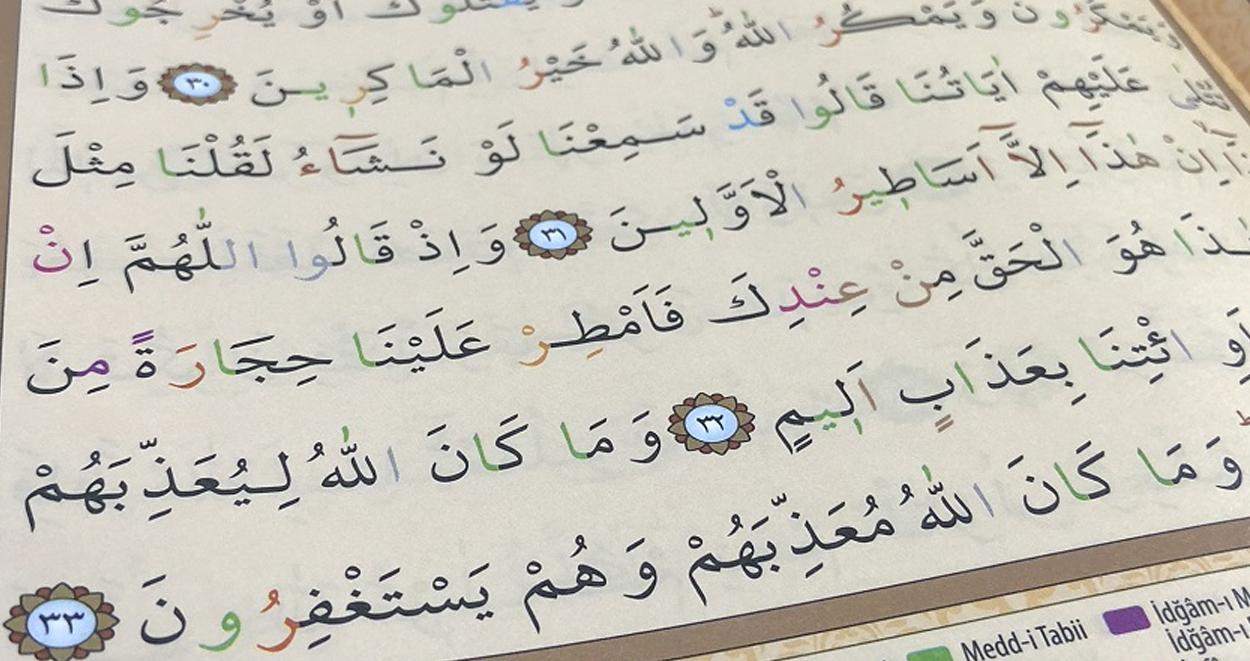 يَقْتُلُوكَ اَوْ يُخْرِجُوكَ
وَيَمْكُرُونَ وَيَمْكُرُ اللّٰهُ وَاللّٰهُ خَيْرُ الْمَاكِرِينَ ٣٠ وَاِذَا
تُتْلٰى عَلَيْهِمْ اٰيَاتُنَا قَالُوا قَدْ سَمِعْنَا لَوْ نَشَٓاءُ لَقُلْنَا مِثْلَ
اِنْ هٰذَٓا اِلَّٓا اَسَاطِيرُ الْاَوَّلِينَ ٣١ وَاِذْ قَالُوا اللّٰهُمَّ اِنْ
هُوَ الْحَقَّ مِنْ عِنْدِكَ فَاَمْطِرْ عَلَيْنَا حِجَارَةً مِنَ
اَوِ ائْتِنَا بِعَذَابٍ اَلِيمٍ ٣٢ وَمَا كَانَ اللّٰهُ لِيُعَذِّبَهُمْ
وَمَا كَانَ اللّٰهُ مُعَذِّبَهُمْ وَهُمْ يَسْتَغْفِرُونَ ٣٣
Medd-i Tabii İdğâm-ı